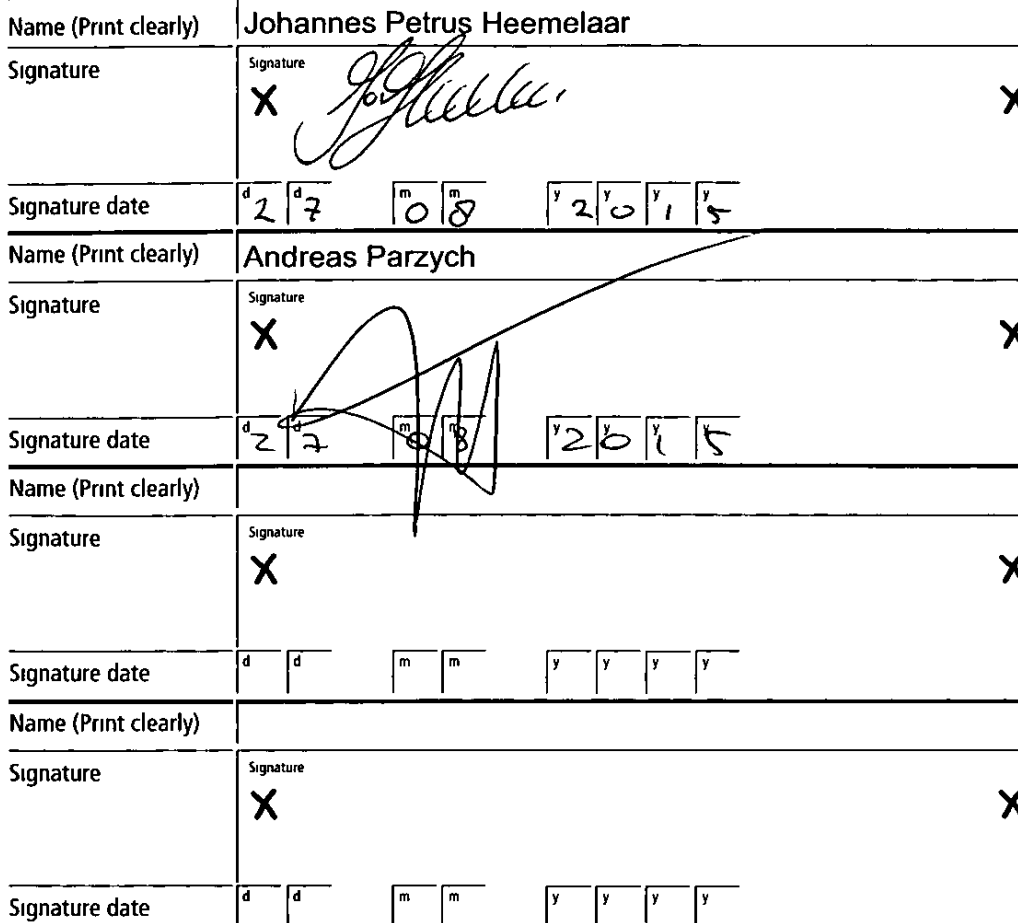 Name (Print clearly) Johannes Petrus Heemelaar
Signature Signature
X X
Signature date d 2 d 7 m 0 m 8 y 2 y 0 y 1 y 5
Name (Print clearly) Andreas Parzych
Signature Signature
X X
Signature date d 2 d 7 m 0 m 8 y 2 y 0 y 1 y 5
Name (Print clearly)
Signature Signature
X X
Signature date d d m m y y y y
Name (Print clearly)
Signature Signature
X X
Signature date d d m m y y y y